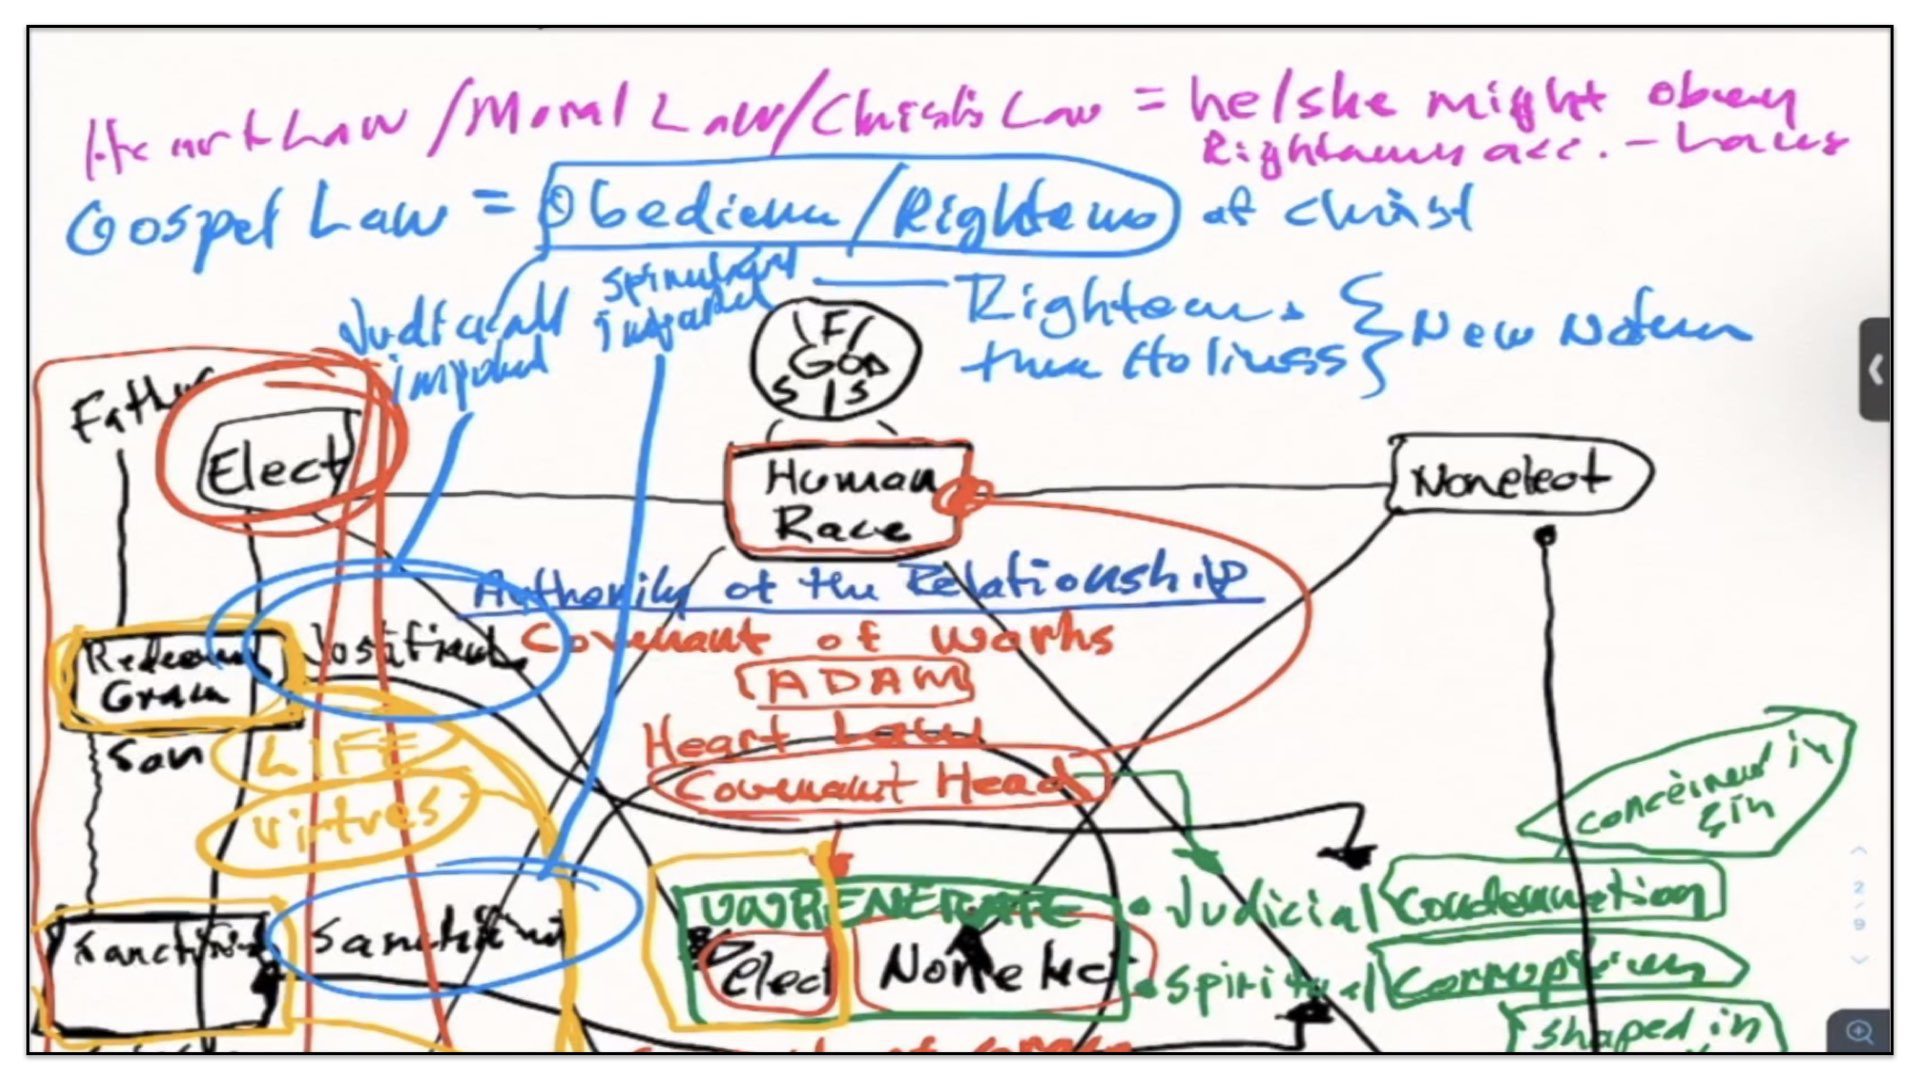 Heart Law / Moral Law / Christ's Law = he/she might obey
Righteous acc. - Laws
Gospel Law = Obedience / Righteous of Christ
Judicially
imputed
Spiritually
imparted
Righteous.
true Holiness
New Nature
F
GOD
S S
Father
Elect
Human
Race
Nonelect
Authority of the Relationship
Covenant of Works
ADAM
Heart Law
Covenant Head
Redeeming
Grace
Justified
Son
LIFE
Virtues
conceived in
sin
UNREGENERATE
Elect
Nonelect
• Judicial Condemnation
• Spiritual Corruption
shaped in
Sanctified
2 / 9